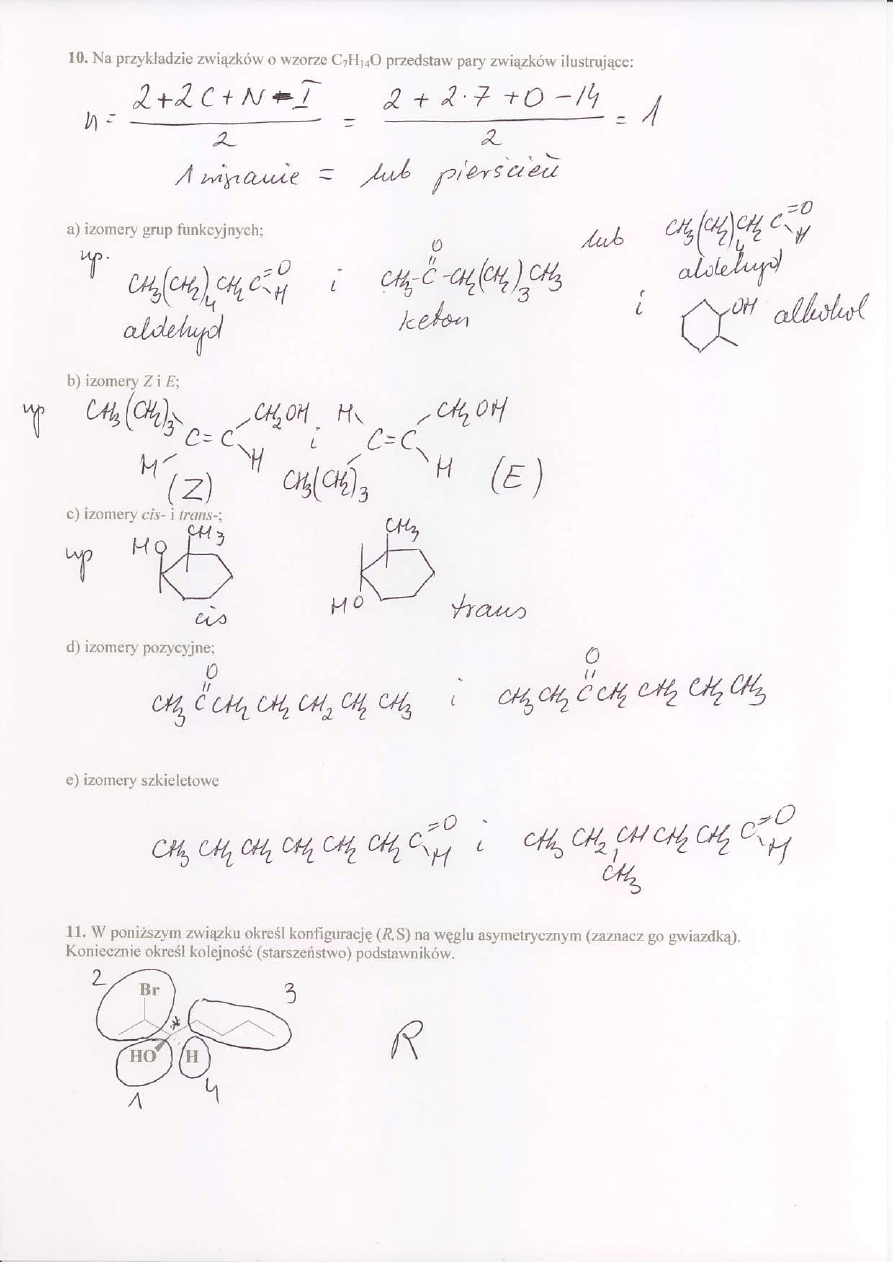 10. Na przykładzie związków o wzorze C₇H₁₄O przedstaw pary związków ilustrujące:
n = (2+2C+N-I)/2 = (2+2·7+0-14)/2 = 1
1 wiązanie = lub pierścień
a) izomery grup funkcyjnych;
np. CH₃(CH₂)₄CH₂C=O H i CH₃-C-CH₂(CH₂)₃CH₃ O lub CH₃(CH₂)₄CH₂C=O H
aldehyd keton aldehyd
i OH alkohol
b) izomery Z i E;
np CH₃(CH₂)₃ CH₂OH i H CH₂OH
C=C C=C
H H CH₃(CH₂)₃ H
(Z) (E)
c) izomery cis- i trans-;
np HO CH₃ CH₃
HO
cis trans
d) izomery pozycyjne;
O O
CH₃CCH₂CH₂CH₂CH₂CH₃ i CH₃CH₂CCH₂CH₂CH₂CH₃
e) izomery szkieletowe
CH₃CH₂CH₂CH₂CH₂CH₂C=O H i CH₃CH₂CHCH₂CH₂C=O H
CH₃
11. W poniższym związku określ konfigurację (R,S) na węglu asymetrycznym (zaznacz go gwiazdką).
Koniecznie określ kolejność (starszeństwo) podstawników.
2 Br 3
*
HO H R
1 4